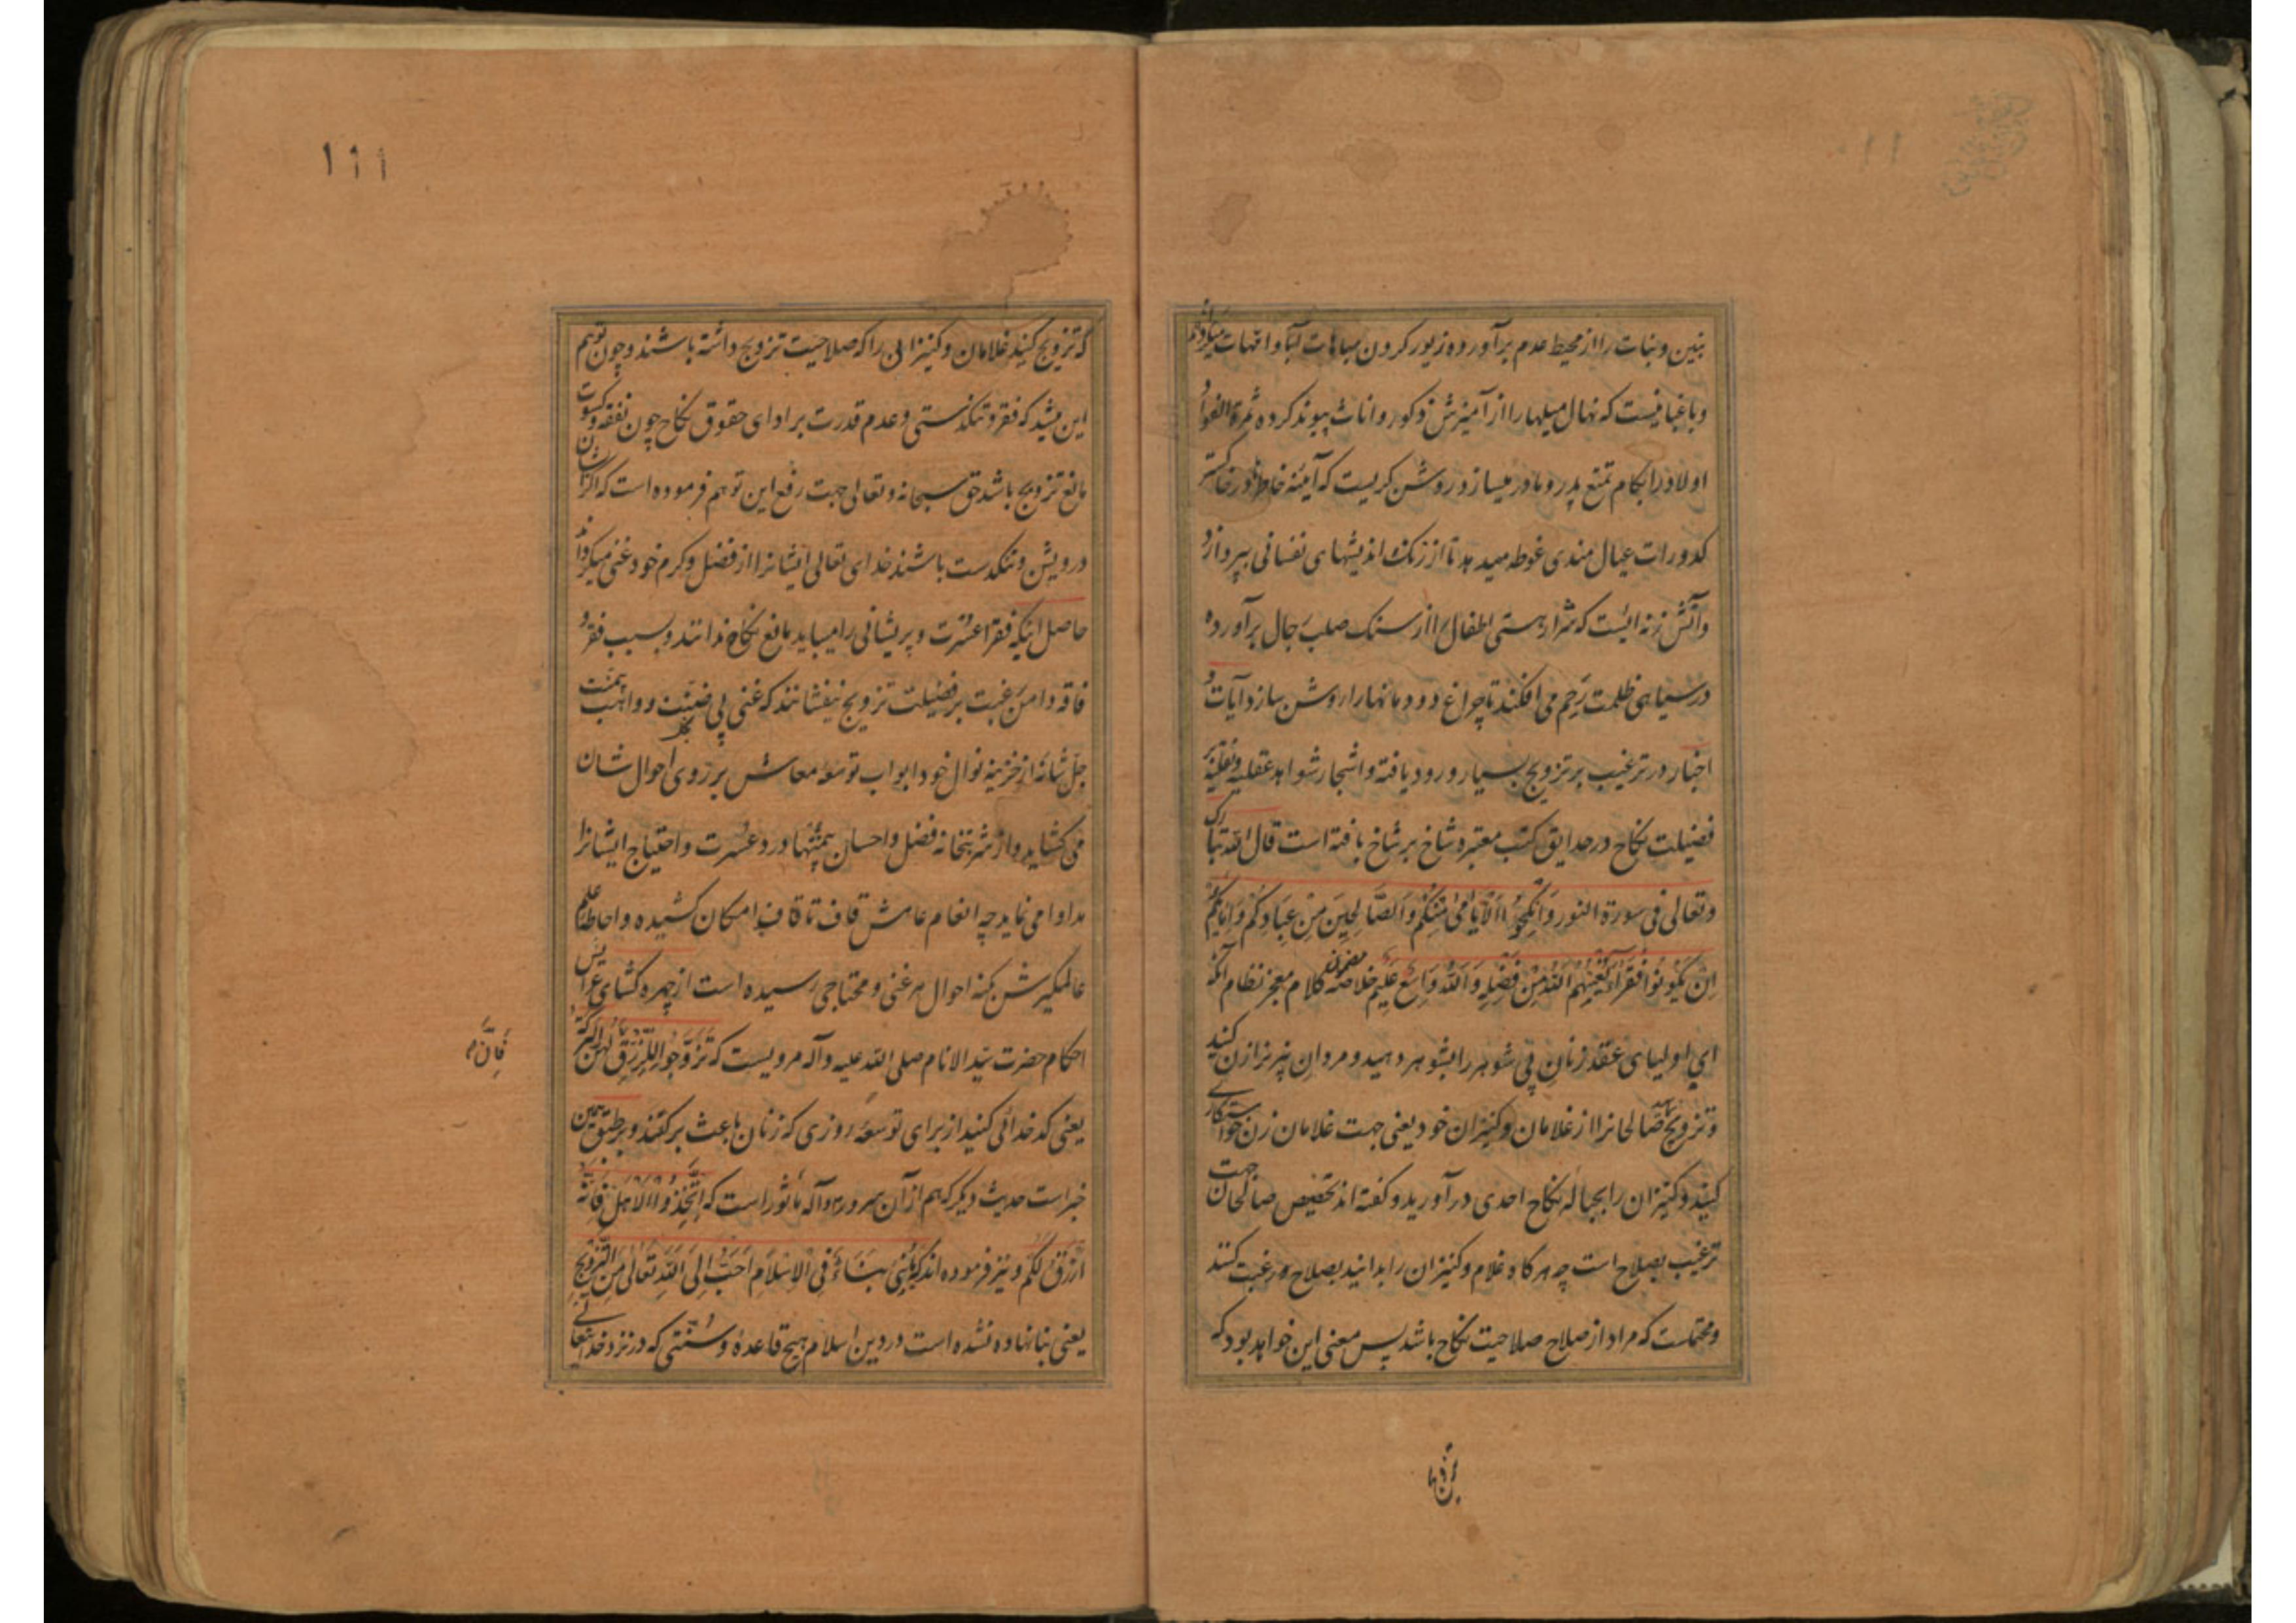 بنین و بنات را از محیط عدم برآورده زیور کردن مباهات آبا و امهات میکرداند
و باغبانیست که نهال میلها را از آمیزش ذکور و اناث پیوند کرده ثمرة الفواد
اولاد را بکام تمتع پدر و مادر میسازد روشن کریست که آینه خاطر در خاکستر
کدورات عیال مندی غوطه میدهد تا از زنک اندیشهای نفسانی بپردازد
و آتش زنه ایست که شرار هستی اطفال را از سنک صلب رجال برآورده
در سیاهی ظلمت رحم می افکند تا چراغ دودمانها را روشن سازد آیات و
اخبار در ترغیب بر تزویج بسیار ورود یافته و اشجار شواهد عقلیه و نقلیه بر
فضیلت نکاح در حدایق کتب معتبره شاخ بر شاخ بافته است قال الله تبارک
و تعالی فی سورة النور وَاَنْکِحُوا الْاَیَامٰی مِنْکُمْ وَالصَّالِحِینَ مِنْ عِبَادِکُمْ وَاِمَائِکُمْ
اِنْ یَکُونُوا فُقَرَاءَ یُغْنِهِمُ اللّٰهُ مِنْ فَضْلِهِ وَاللّٰهُ وَاسِعٌ عَلِیمٌ خلاصه مضمون کلام معجز نظام آنکه
ای اولیای عقد زنان بی شوهر را بشوهر دهید و مردان نیز بزن کنید
و تزویج نمایید صالحانرا از غلامان و کنیزان خود یعنی جهت غلامان زن خواستکاری
کنید و کنیزان را بحباله نکاح احدی درآورید و کفته اند تخصیص صالحان جهت
ترغیب بصلاح است چه هرکاه غلام و کنیزان را بدانید بصلاح رغبت کنند
و محتملست که مراد از صلاح صلاحیت نکاح باشد پس معنی این خواهد بود که
۱۱۱
که تزویج کنید غلامان و کنیزانی را که صلاحیت تزویج داشته باشند و چون توهم
این میشد که فقر و تنکدستی و عدم قدرت بر ادای حقوق نکاح چون نفقه و کسوت
مانع تزویج باشد حق سبحانه و تعالی جهت رفع این توهم فرموده است که اکر ایشان
درویش و تنکدست باشند خدای تعالی ایشانرا از فضل و کرم خود غنی میکرداند
حاصل اینکه فقرا عسرت و پریشانی را میباید مانع نکاح ندانند و بسبب فقر و
فاقه دامن رغبت بر فضیلت تزویج نیفشانند که غنی بی ضنت و واهب بی منت
جل شانه از خزینه نوال خود ابواب توسعه معاش بر روی احوال شان
می کشاید و از شربتخانه فضل و احسان بی منتها درد عسرت و احتیاج ایشانرا
مداوا می نماید چه انعام عامش قاف تا قاف امکان کشیده و احاطه علم
عالمکیرش بکنه احوال هر غنی و محتاجی رسیده است از چهره کشای عرایس
احکام حضرت سید الانام صلی الله علیه و آله مرویست که تَزَوَّجُوا لِلرِّزْقِ
فَاِنَّ
یعنی کدخدائی کنید از برای توسعه روزی که زنان باعث برکتند و بر طبق همین
خبر است حدیث دیکر که هم از آن سرور و آله ماثور است که اِتَّخِذُوا الْاَهْلَ فَاِنَّهُ
اَرْزَقُ لَکُمْ و نیز فرموده اند که مَا بُنِیَ بِنَاءٌ فِی الْاِسْلَامِ اَحَبُّ اِلَی اللّٰهِ تَعَالٰی مِنَ التَّزْوِیجِ
یعنی بنا نهاده نشده است در دین اسلام هیچ قاعده و سنتی که در نزد خدایتعالی